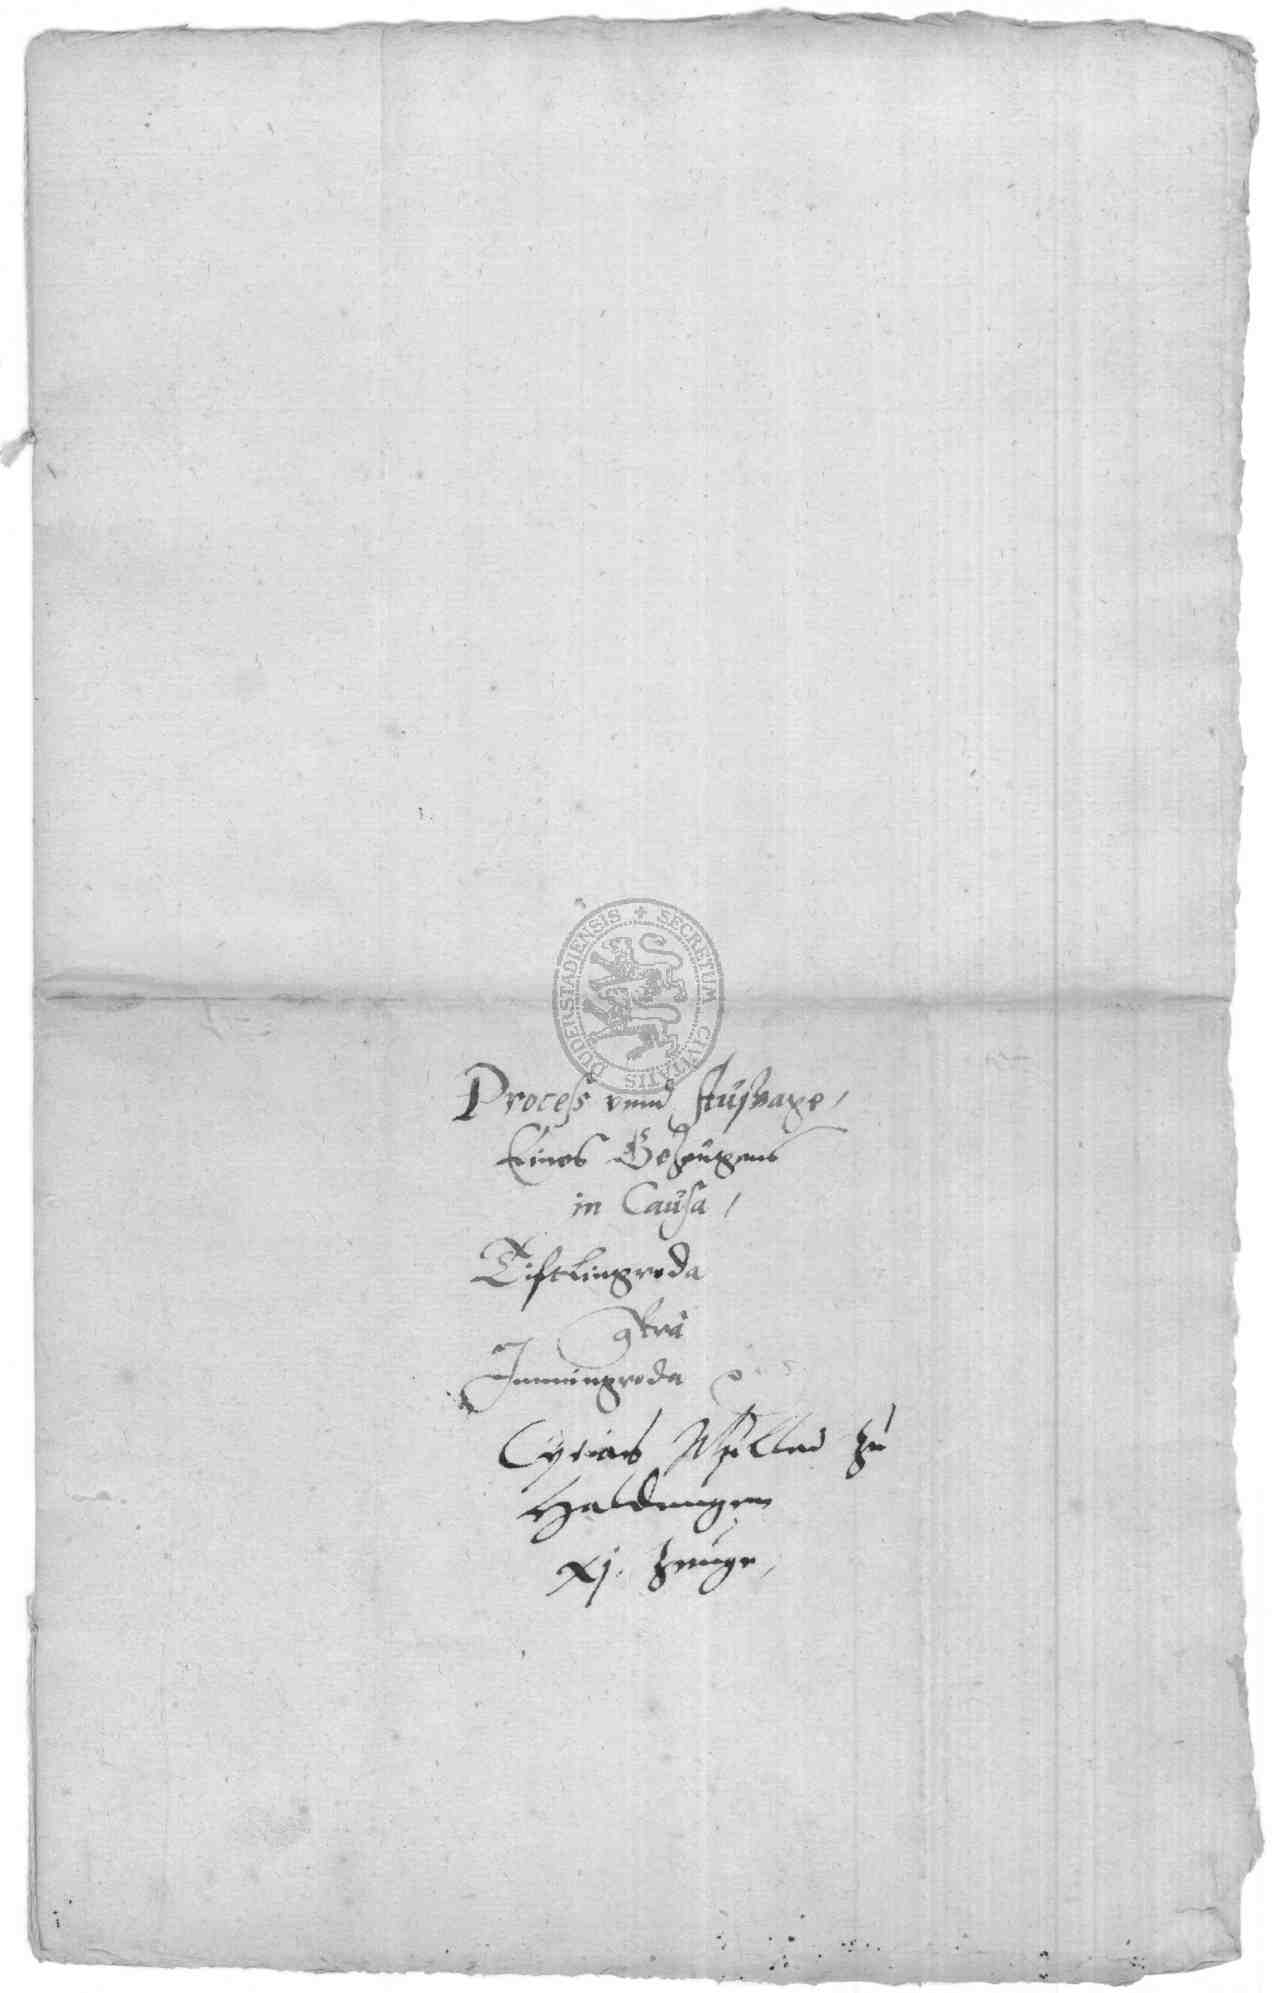 SECRETUM CIVITATIS DUDERSTADIENSIS
Process vnnd Aussage,
Eines Gezeugens
in Causa,
Tiftlingroda
Immingroda
Cyriacs Müller zu
xj. Zeuge,